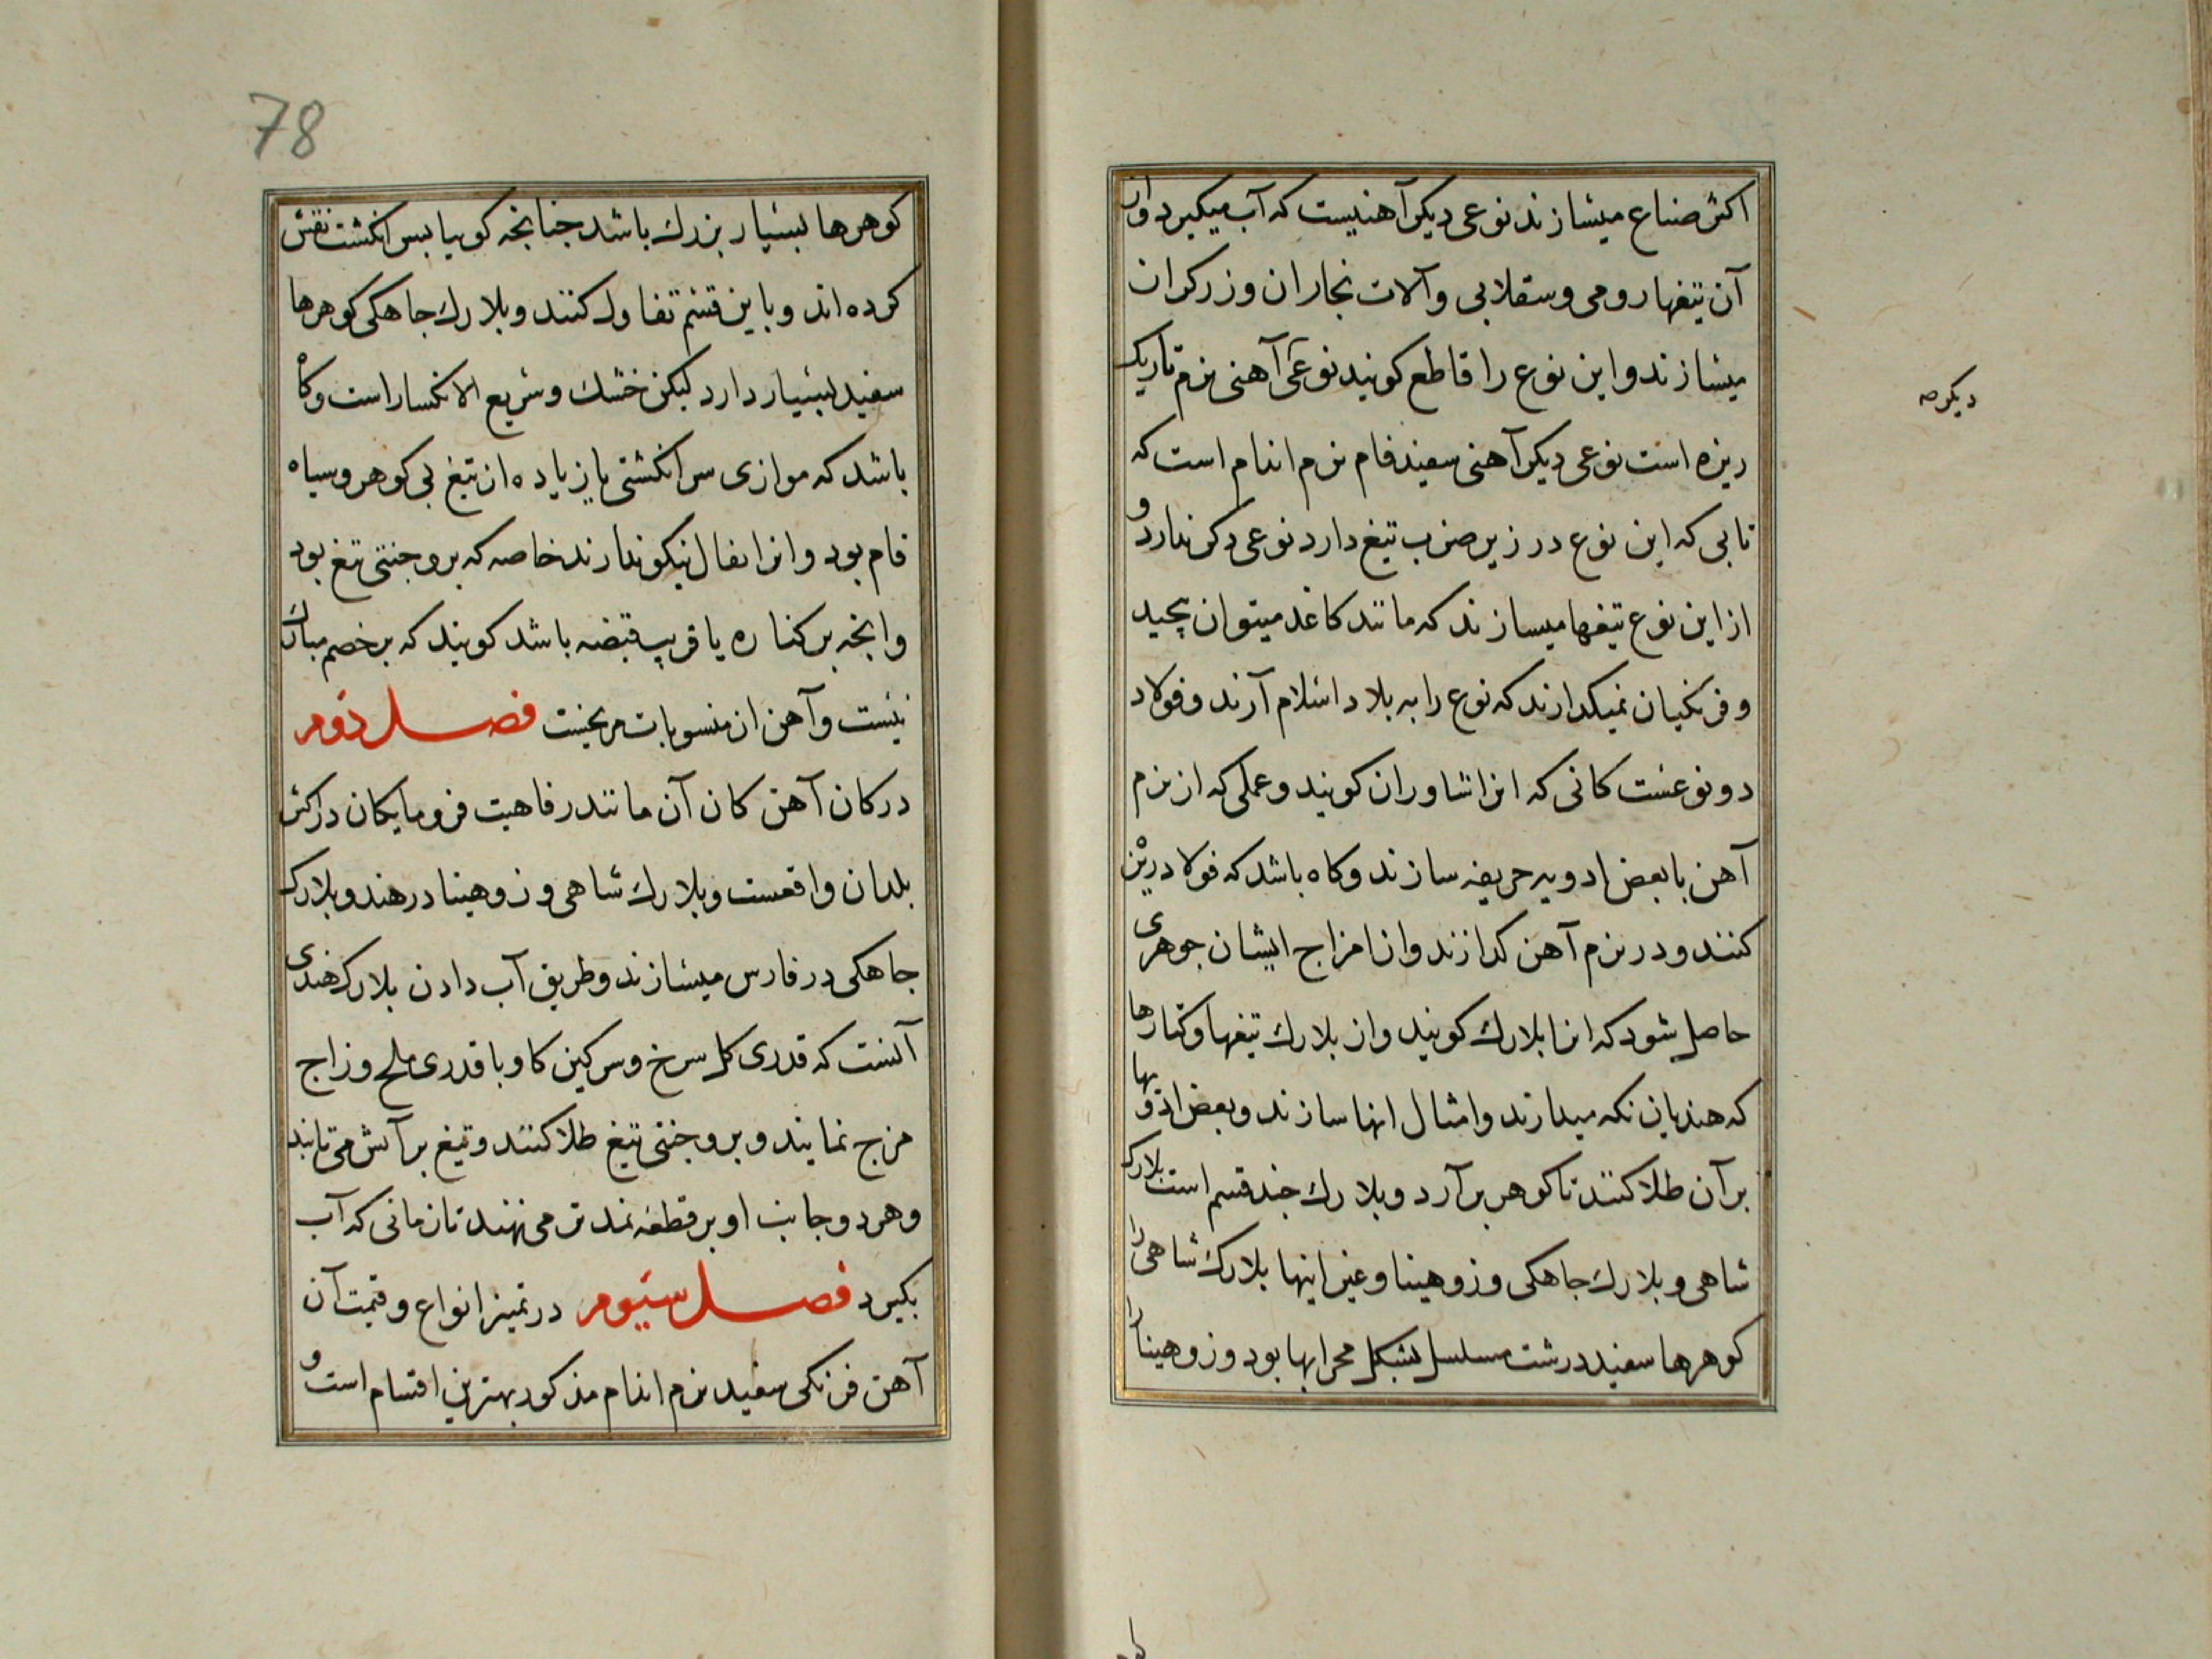 اکثر صناع میسازند نوعی دیکر آهنیست که آب میکیرد و از
آن تیغها رومی و سقلابی و آلات نجاران و زرکران
میسازند و این نوع را قاطع کویند نوعی آهنی نرم تاریک
دیکر صه
ریزه است نوعی دیکر آهنی سفید فام نرم اندام است که
تابی که این نوع در زیر ضرب تیغ دارد نوعی دکر ندارد و
از این نوع تیغها میسازند که مانند کاغد میتوان پیچید
و فرنکیان نمیکذارند که نوع را به بلاد اسلام آرند و فولاد
دو نوعست کانی که انرا شاوران کویند و عملی که از نرم
آهن با بعض ادویه حریفه سازند و کاه باشد که فولاد ریزن
کنند و در نرم آهن کدازند و از امزاج ایشان جوهری
حاصل شود که انرا بلارك کویند و از بلارك تیغها و کتارها
که هندیان نکه میدارند و امثال انها سازند و بعض ادویها
بر آن طلا کنند تا کوهر بر آرد و بلارك چند قسم است بلارک
شاهی و بلارك جاهکی و زوهینا و غیر اینها بلارك شاهی را
کوهرها سفید درشت مسلسل بشکل محرابها بود و زوهینا را
78
کوهرها بسیار بزرك باشد جنانجه کویا بسر انکشت نقش
کرده اند و باین قسم تفاول کنند و بلارك جاهکی کوهرها
سفید بسیار دارد لیکن خشك و سریع الانکسار است و کاه
باشد که موازی سر انکشتی یا زیاده از تیغ بی کوهر و سیاه
فام بود و انرا بفال نیکو ندارند خاصه که بر وجنتی تیغ بود
و انجه بر کناره یا قریب قبضه باشد کویند که بر خصم مبارك
نیست و آهن از منسوبات مریخست فصل دوم
در کان آهن کان آن مانند رفاهیت فرومایکان در اکثر
بلدان واقعست و بلارك شاهی و زوهینا در هند و بلارک
جاهکی در فارس میسازند و طریق آب دادن بلارک هندی
آنست که قدری کل سرخ و سرکین کاو با قدری ملح و زاج
مزج نمایند و بر وجنتی تیغ طلا کنند و تیغ بر آتش می تابند
و هر دو جانب او بر قطعه نمد تر می نهند تا زمانی که آب
بکیرد فصل سیوم در تمیز انواع و قیمت آن
آهن فرنکی سفید نرم اندام مذکور بهترین اقسام است و